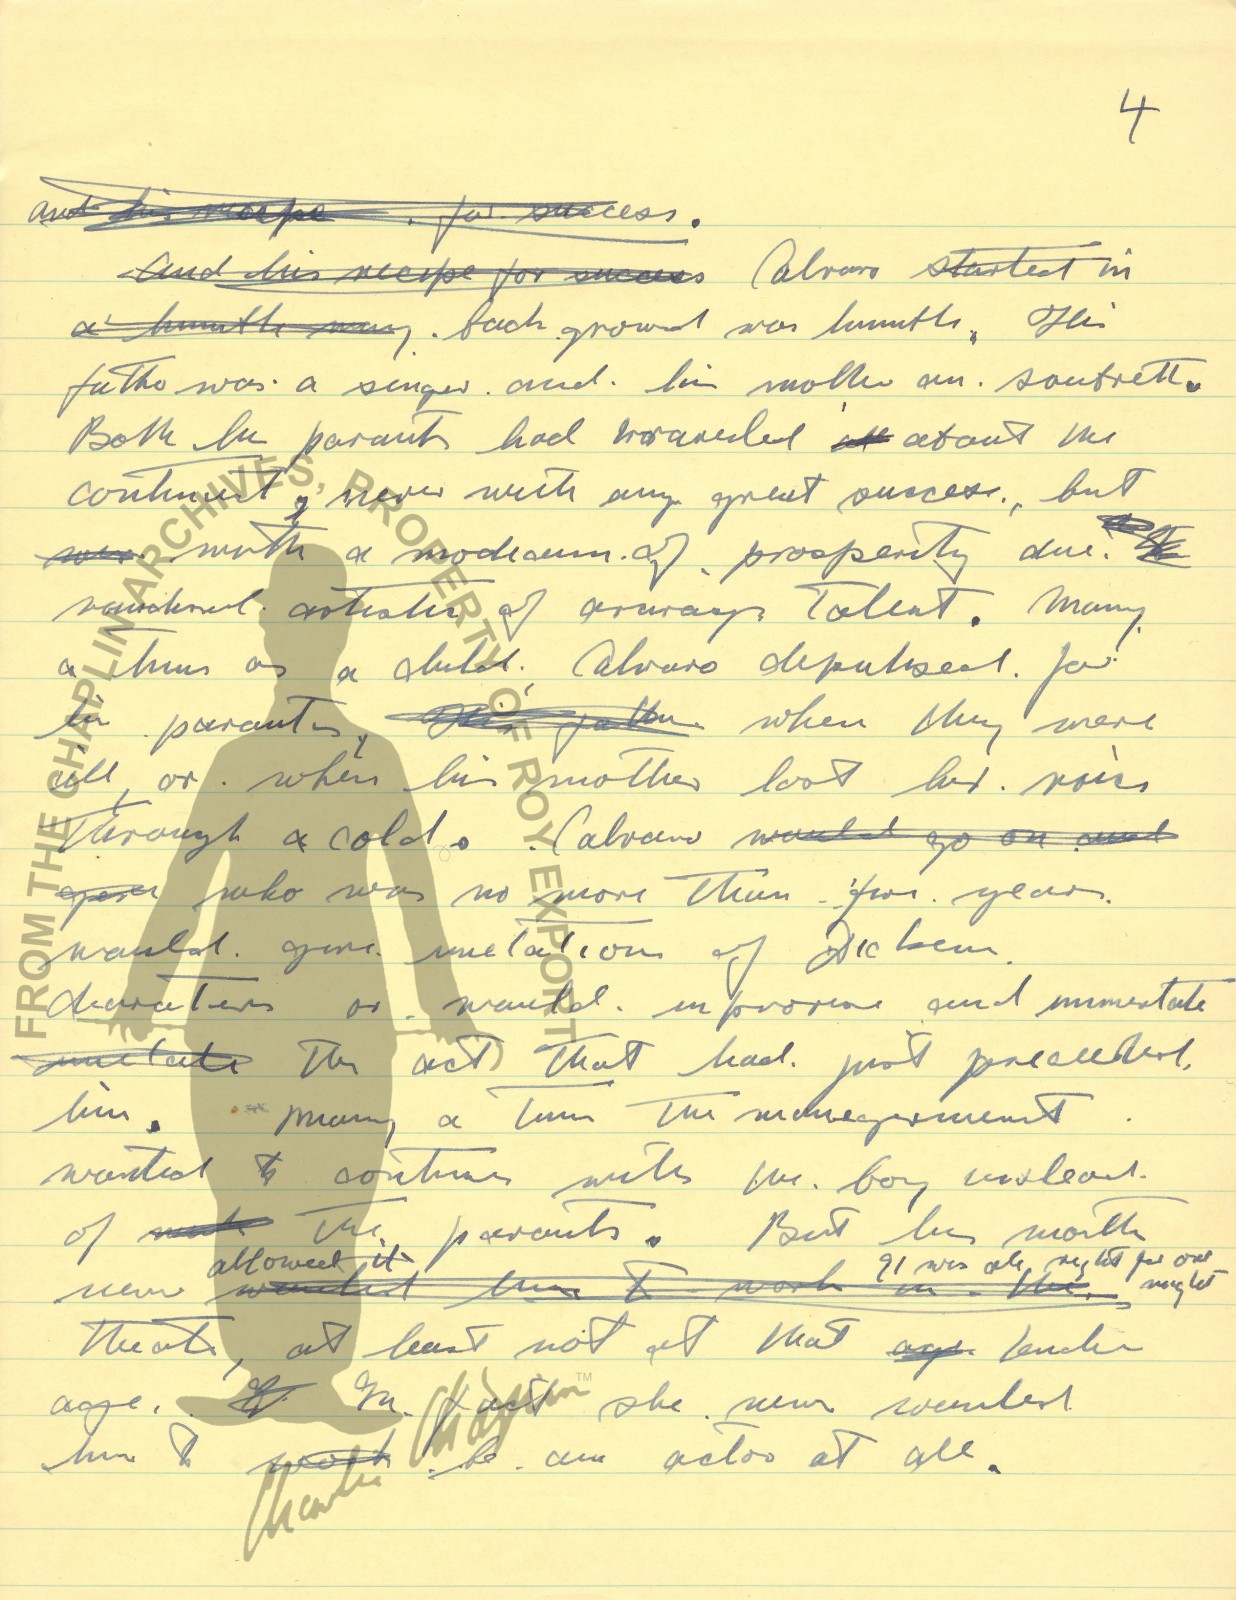 4
and his recipe for success.
And his recipe for success Calvaro started in
a humble way. back ground was humble. His
father was a singer. and. his mother an. soubrett.
Both his parants had travelled about the
continent, never with any great success, but
with a modicum of prosperity due.
artistes of average Talent. Many
a time as a child, Calvaro deputised for
his parants, His father when they were
ill, or. when his mother lost her. voice
Through a cold. Calvaro would go on and
who was no more Than five years.
would. give imetations of Dickens
characters or would. improvise and immertate
imetate The act That had just preceeded
him. Many a time The manegerment
wanted to continue with the boy instead.
of The parants. But his mother
allowed it It was all right for one
never wanted him to work in the night
Theatre, at least not at that age tender
age. In fact she never wanted
him to work be an actor at all.
FROM THE CHAPLIN ARCHIVES, PROPERTY OF ROY EXPORT
Charlie Chaplin™